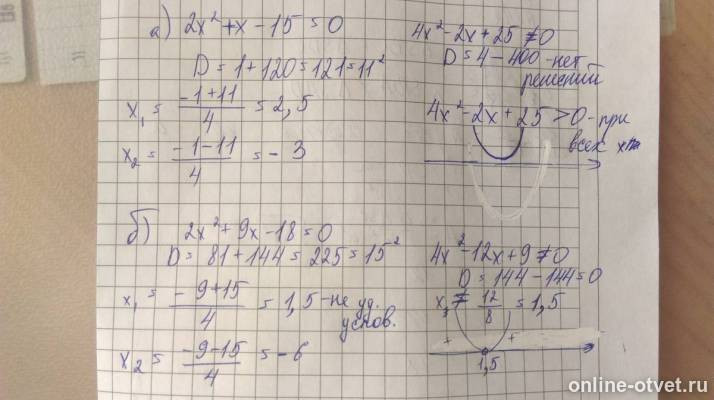 а) 2x² + x - 15 = 0
D = 1 + 120 = 121 = 11²
x₁ = (-1+11)/4 = 2,5
x₂ = (-1-11)/4 = -3
4x² - 2x + 25 ≠ 0
D = 4 - 400 - нет
решений
4x² - 2x + 25 > 0 - при
всех x
б) 2x² + 9x - 18 = 0
D = 81 + 144 = 225 = 15²
x₁ = (-9+15)/4 = 1,5 - не уд.
услов.
x₂ = (-9-15)/4 = -6
4x² - 12x + 9 ≠ 0
D = 144 - 144 = 0
x₁ ≠ 12/8 = 1,5
+ +
1,5
online-otvet.ru